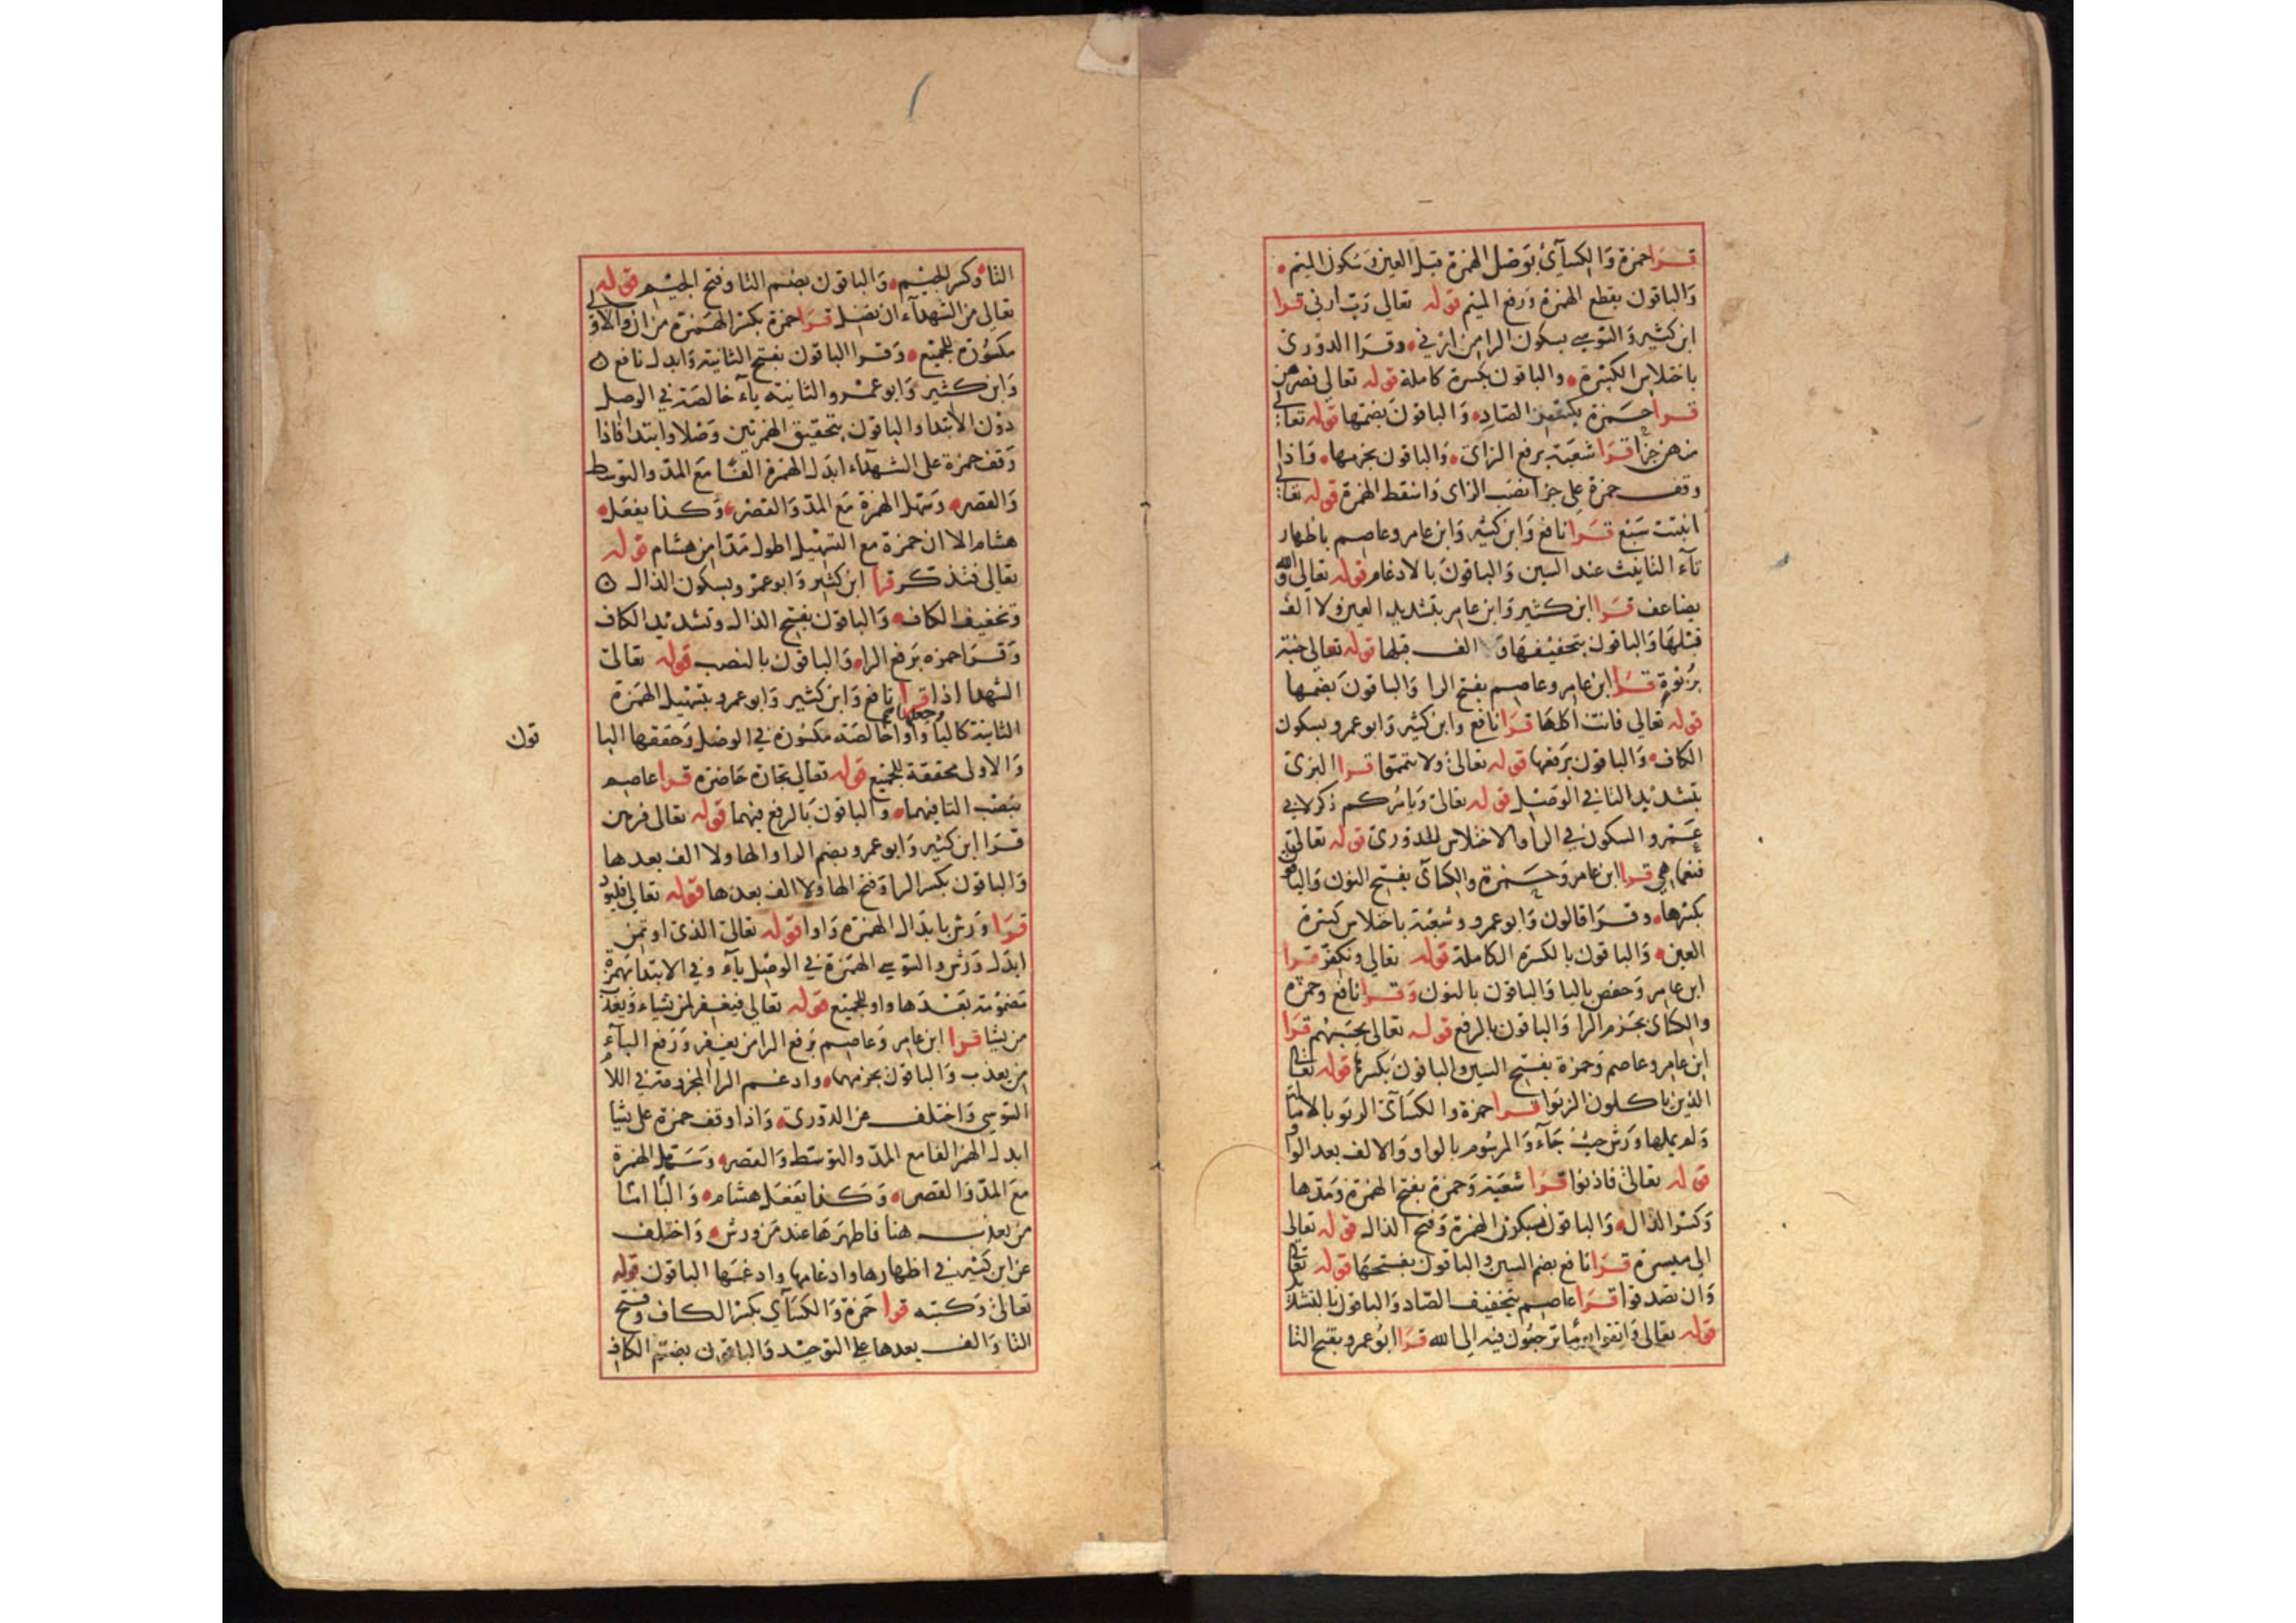 قرا حمزة والكسآئي بوصل الهمزة قبل العين وسكون الميم
والباقون بقطع الهمزة ورفع الميم قوله تعالى رب ارني قرا
ابن كثير والسوسي بسكون الرا من ارني وقرا الدوري
باختلاس الكسرة والباقون بكسرة كاملة قوله تعالى فصرهن
قرا حمزة بكسر الصاد والباقون بضمها قوله تعالى
منهن جزا قرا شعبة برفع الزاي والباقون بجزمها واذا
وقف حمزة على جزا نصب الزاى واسقط الهمزة قوله تعالى
انبتت سبع قرا نافع وابن كثير وابن عامر وعاصم باظهار
تآء التانيث عند السين والباقون بالادغام قوله تعالى والله
يضاعف قرا ابن كثير وابن عامر بتشديد العين ولا الف
قبلها والباقون بتخفيفها و الف قبلها قوله تعالى جنة
بربوة قرا ابن عامر وعاصم بفتح الرا والباقون بضمها
قوله تعالى فاتت اكلها قرا نافع وابن كثير وابو عمرو بسكون
الكاف والباقون برفعها قوله تعالى ولا تيمموا قرا البزى
بتشديد التا في الوصل قوله تعالى ويامركم ذكر لابي
عمرو السكون في الرا والاختلاس للدوري قوله تعالى
فنعما هي قرا ابن عامر وحمزة والكسآئ بفتح النون والباقون
بكسرها وقرا قالون وابو عمرو وشعبة باختلاس كسرة
العين والباقون بالكسرة الكاملة قوله تعالى ونكفر قرا
ابن عامر وحفص باليا والباقون بالنون وقرا نافع وحمزه
والكسائ بجزم الرا والباقون بالرفع قوله تعالى يحسبهم قرا
ابن عامر وعاصم وحمزة بفتح السين والباقون بكسرها قوله تعالى
الذين ياكلون الربوا قرا حمزة والكسآئ الربو بالامالة
ولم يملها ورش حيث جآء والمرسوم بالواو والالف بعد الواو
قوله تعالى فاذنوا قرا شعبة وحمزة بفتح الهمزة ومدها
وكسر الذال والباقون بسكون الهمزة وفتح الذال قوله تعالى
الى ميسرة قرا نافع بضم السين والباقون بفتحها قوله تعالى
وان تصدقوا قرا عاصم بتخفيف الصاد والباقون بالتشديد
قوله تعالى واتقوا يوما ترجعون فيه الى الله قرا ابو عمرو بفتح التا
التا وكسر الجيم والباقون بضم التا وفتح الجيم قوله
تعالى من الشهدآء ان تضل قرا حمزة بكسر الهمزة من ان والاولى
مكسورة للجميع وقرا الباقون بفتح الثانية وابدل نافع
وابن كثير وابو عمرو الثانية يآء خالصة في الوصل
دون الابتدا والباقون بتحقيق الهمزتين وصلا وابتدا فاذا
وقف حمزة على الشهدآء ابدل الهمزة الفا مع المد والتوسط
والقصر وسهل الهمزة مع المد والقصر وكذا يفعل
هشام الا ان حمزة مع التسهيل اطول مدا من هشام قوله
تعالى فتذكر قرا ابن كثير وابو عمرو بسكون الذال
وتخفيف الكاف والباقون بفتح الذال وتشديد الكاف
وقرا حمزه برفع الرا والباقون بالنصب قوله تعالى
الشهدا اذا قرا نافع وابن كثير وابو عمرو بتسهيل الهمزة
الثانية كاليا وجعلها واوا خالصة مكسورة في الوصل وحققها البا
قون
والاولى محققة للجميع قوله تعالى تجارة حاضرة قرا عاصم
بنصب التا فيهما والباقون بالرفع فيهما قوله تعالى فرهن
قرا ابن كثير وابو عمرو بضم الرا والها ولا الف بعدها
والباقون بكسر الرا وفتح الها ولا الف بعدها قوله تعالى فليود
قرا ورش بابدال الهمزة واوا قوله تعالى الذى اوتمن
ابدل ورش والسوسي الهمزة في الوصل يآء وفي الابتدا بهمزة
مضمومة بعدها واو للجميع قوله تعالى فيغفر لمن يشاء ويعذب
من يشا قرا ابن عامر وعاصم برفع الرا من يغفر ورفع البآء
من يعذب والباقون بجزمهما وادغم الرا المجزومة في اللام
السوسي واختلف عن الدوري واذا وقف حمزة على يشا
ابدل الهمز الفا مع المد والتوسط والقصر وسهل الهمزة
مع المد والقصر وكذا يفعل هشام والبا اما
من يعذب هنا فاظهرها عند من ورش واختلف
عن ابن كثير في اظهارها وادغامها وادغمها الباقون قوله
تعالى وكتبه قرا حمزة والكسآي بكسر الكاف وفتح
التا والف بعدها على التوحيد والباقون بضم الكاف